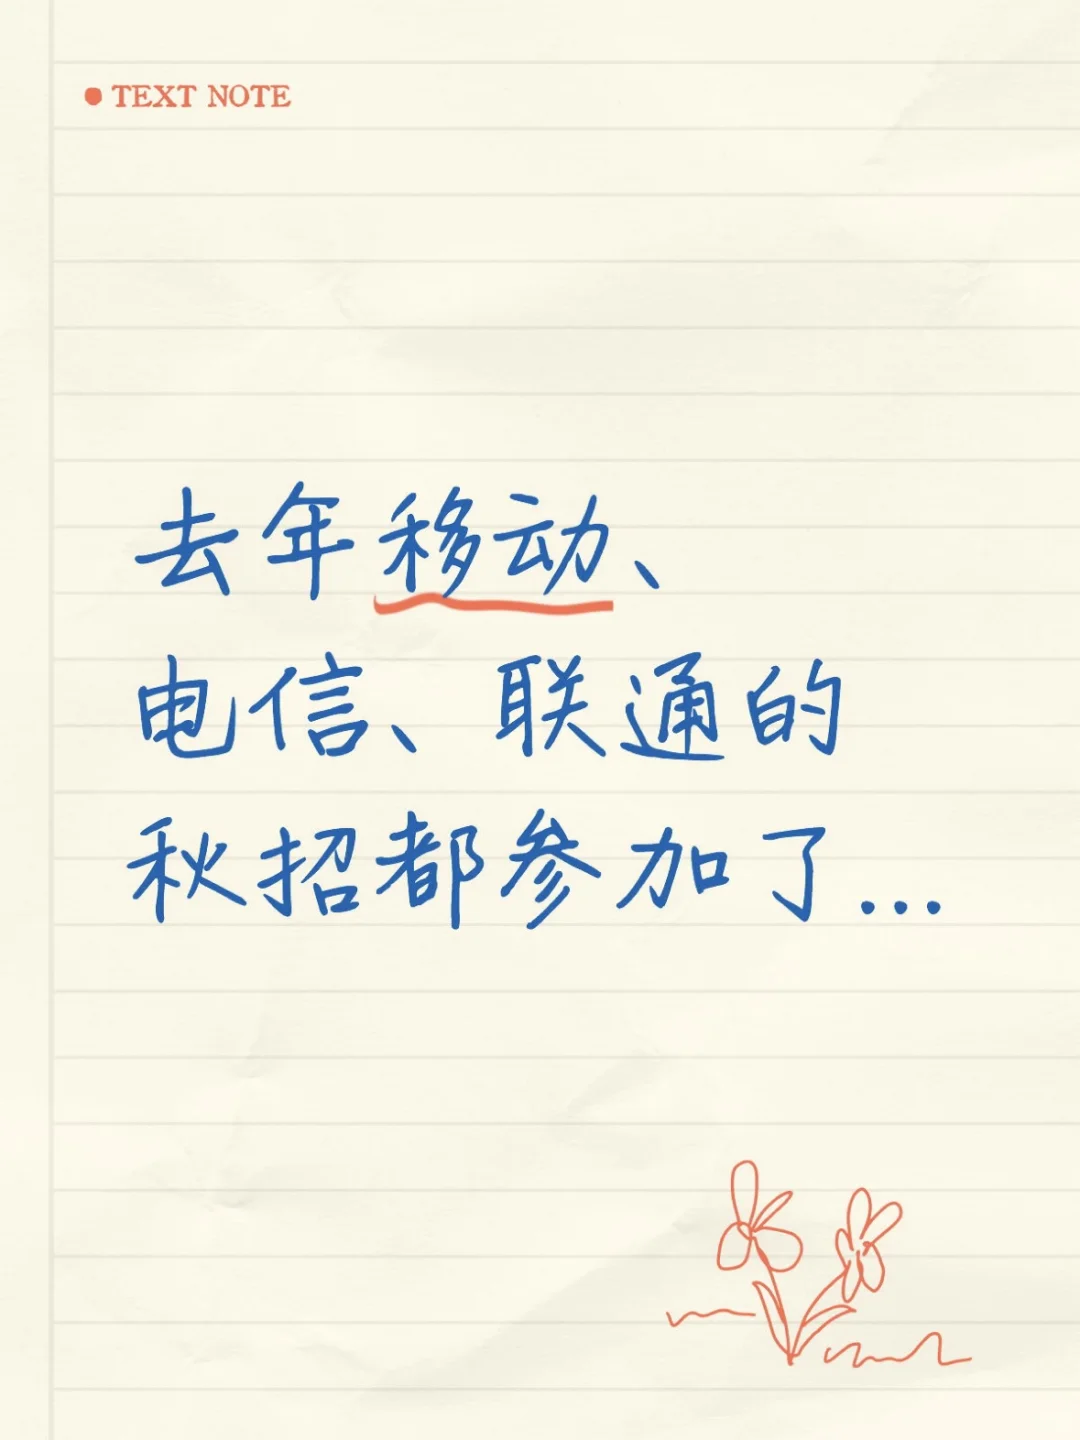 TEXT NOTE
去年移动、
电信、联通的
秋招都参加了...